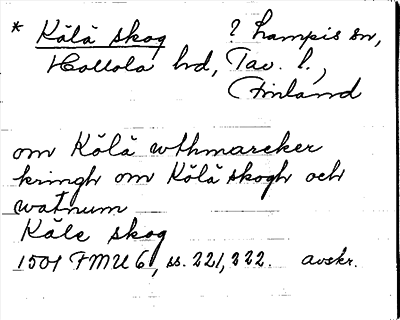 * Kälä skog ? Lampis sn,
Hollola hd, Tav. l.,
Finland
om Kälä wthmarcker
kringh om Kälä skogh och
watnum
Käle skog
1501 FMU 6, ss. 221, 222. avskr.